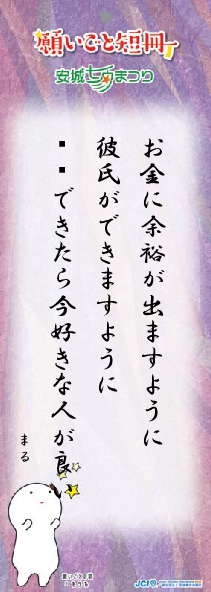 願いごと短冊
安城七夕まつり
お金に余裕が出ますように
彼氏ができますように
・・できたら今好きな人が良
まる
JCI